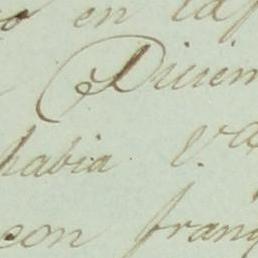 en la
Diciem
habia V.a
con franq